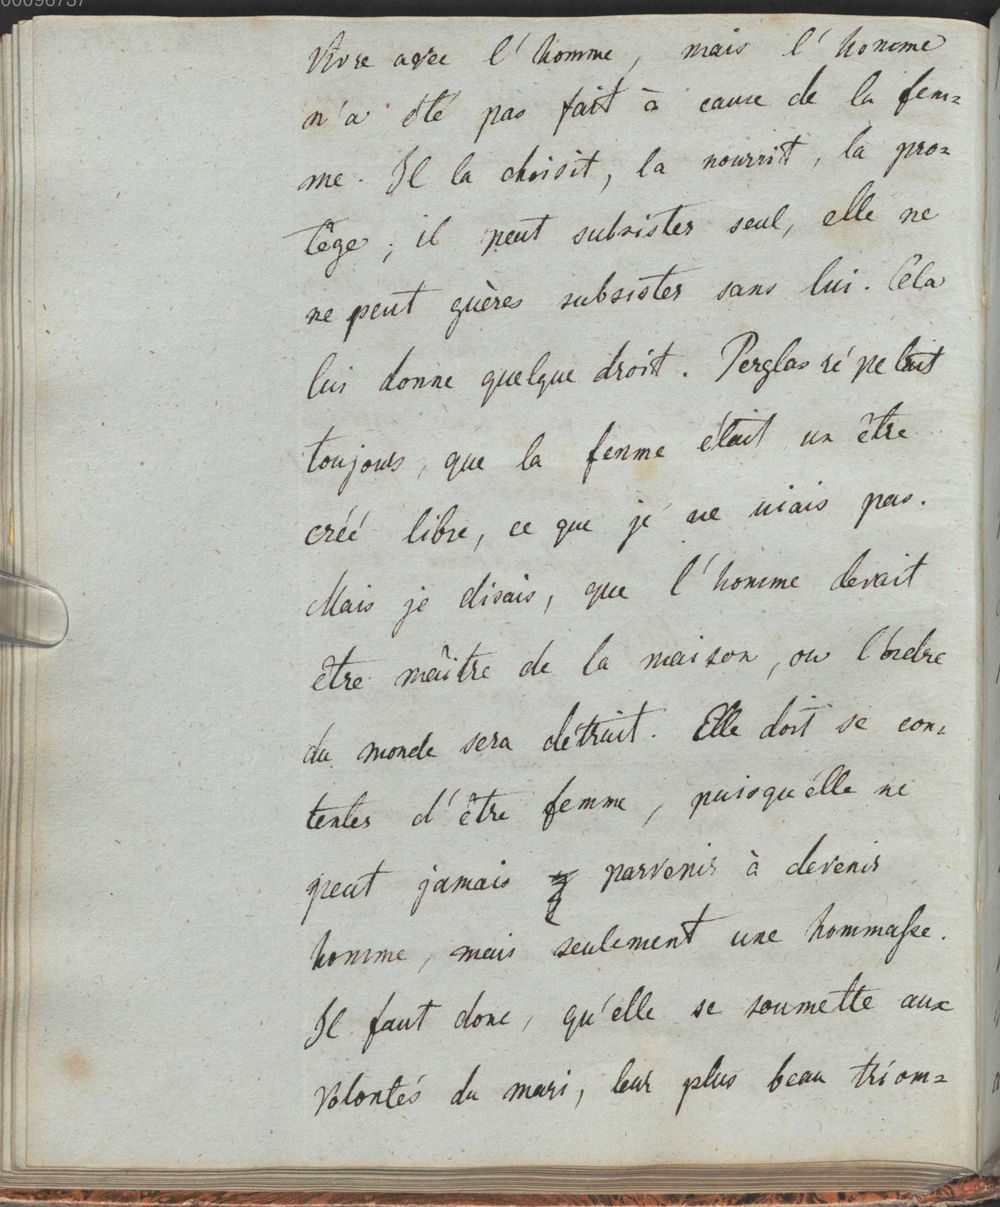 00096737
Vivre avec l'homme, mais l'homme
n'a été pas fait à cause de la fem=
me. Il la choisit, la nourrit, la pro=
tège; il peut subsister seul, elle ne
ne peut guères subsister sans lui. Cela
lui donne quelque droit. Perglas répetait
toujours, que la femme était un être
créé libre, ce que je ne niais pas.
Mais je disais, que l'homme devait
être maître de la maison, ou l'ordre
du monde sera détruit. Elle doit se con=
tenter d'être femme, puisqu'elle ne
peut jamais parvenir à devenir
homme, mais seulement une hommaſse.
Il faut donc, qu'elle se soumette aux
volontés du mari, leur plus beau triom=